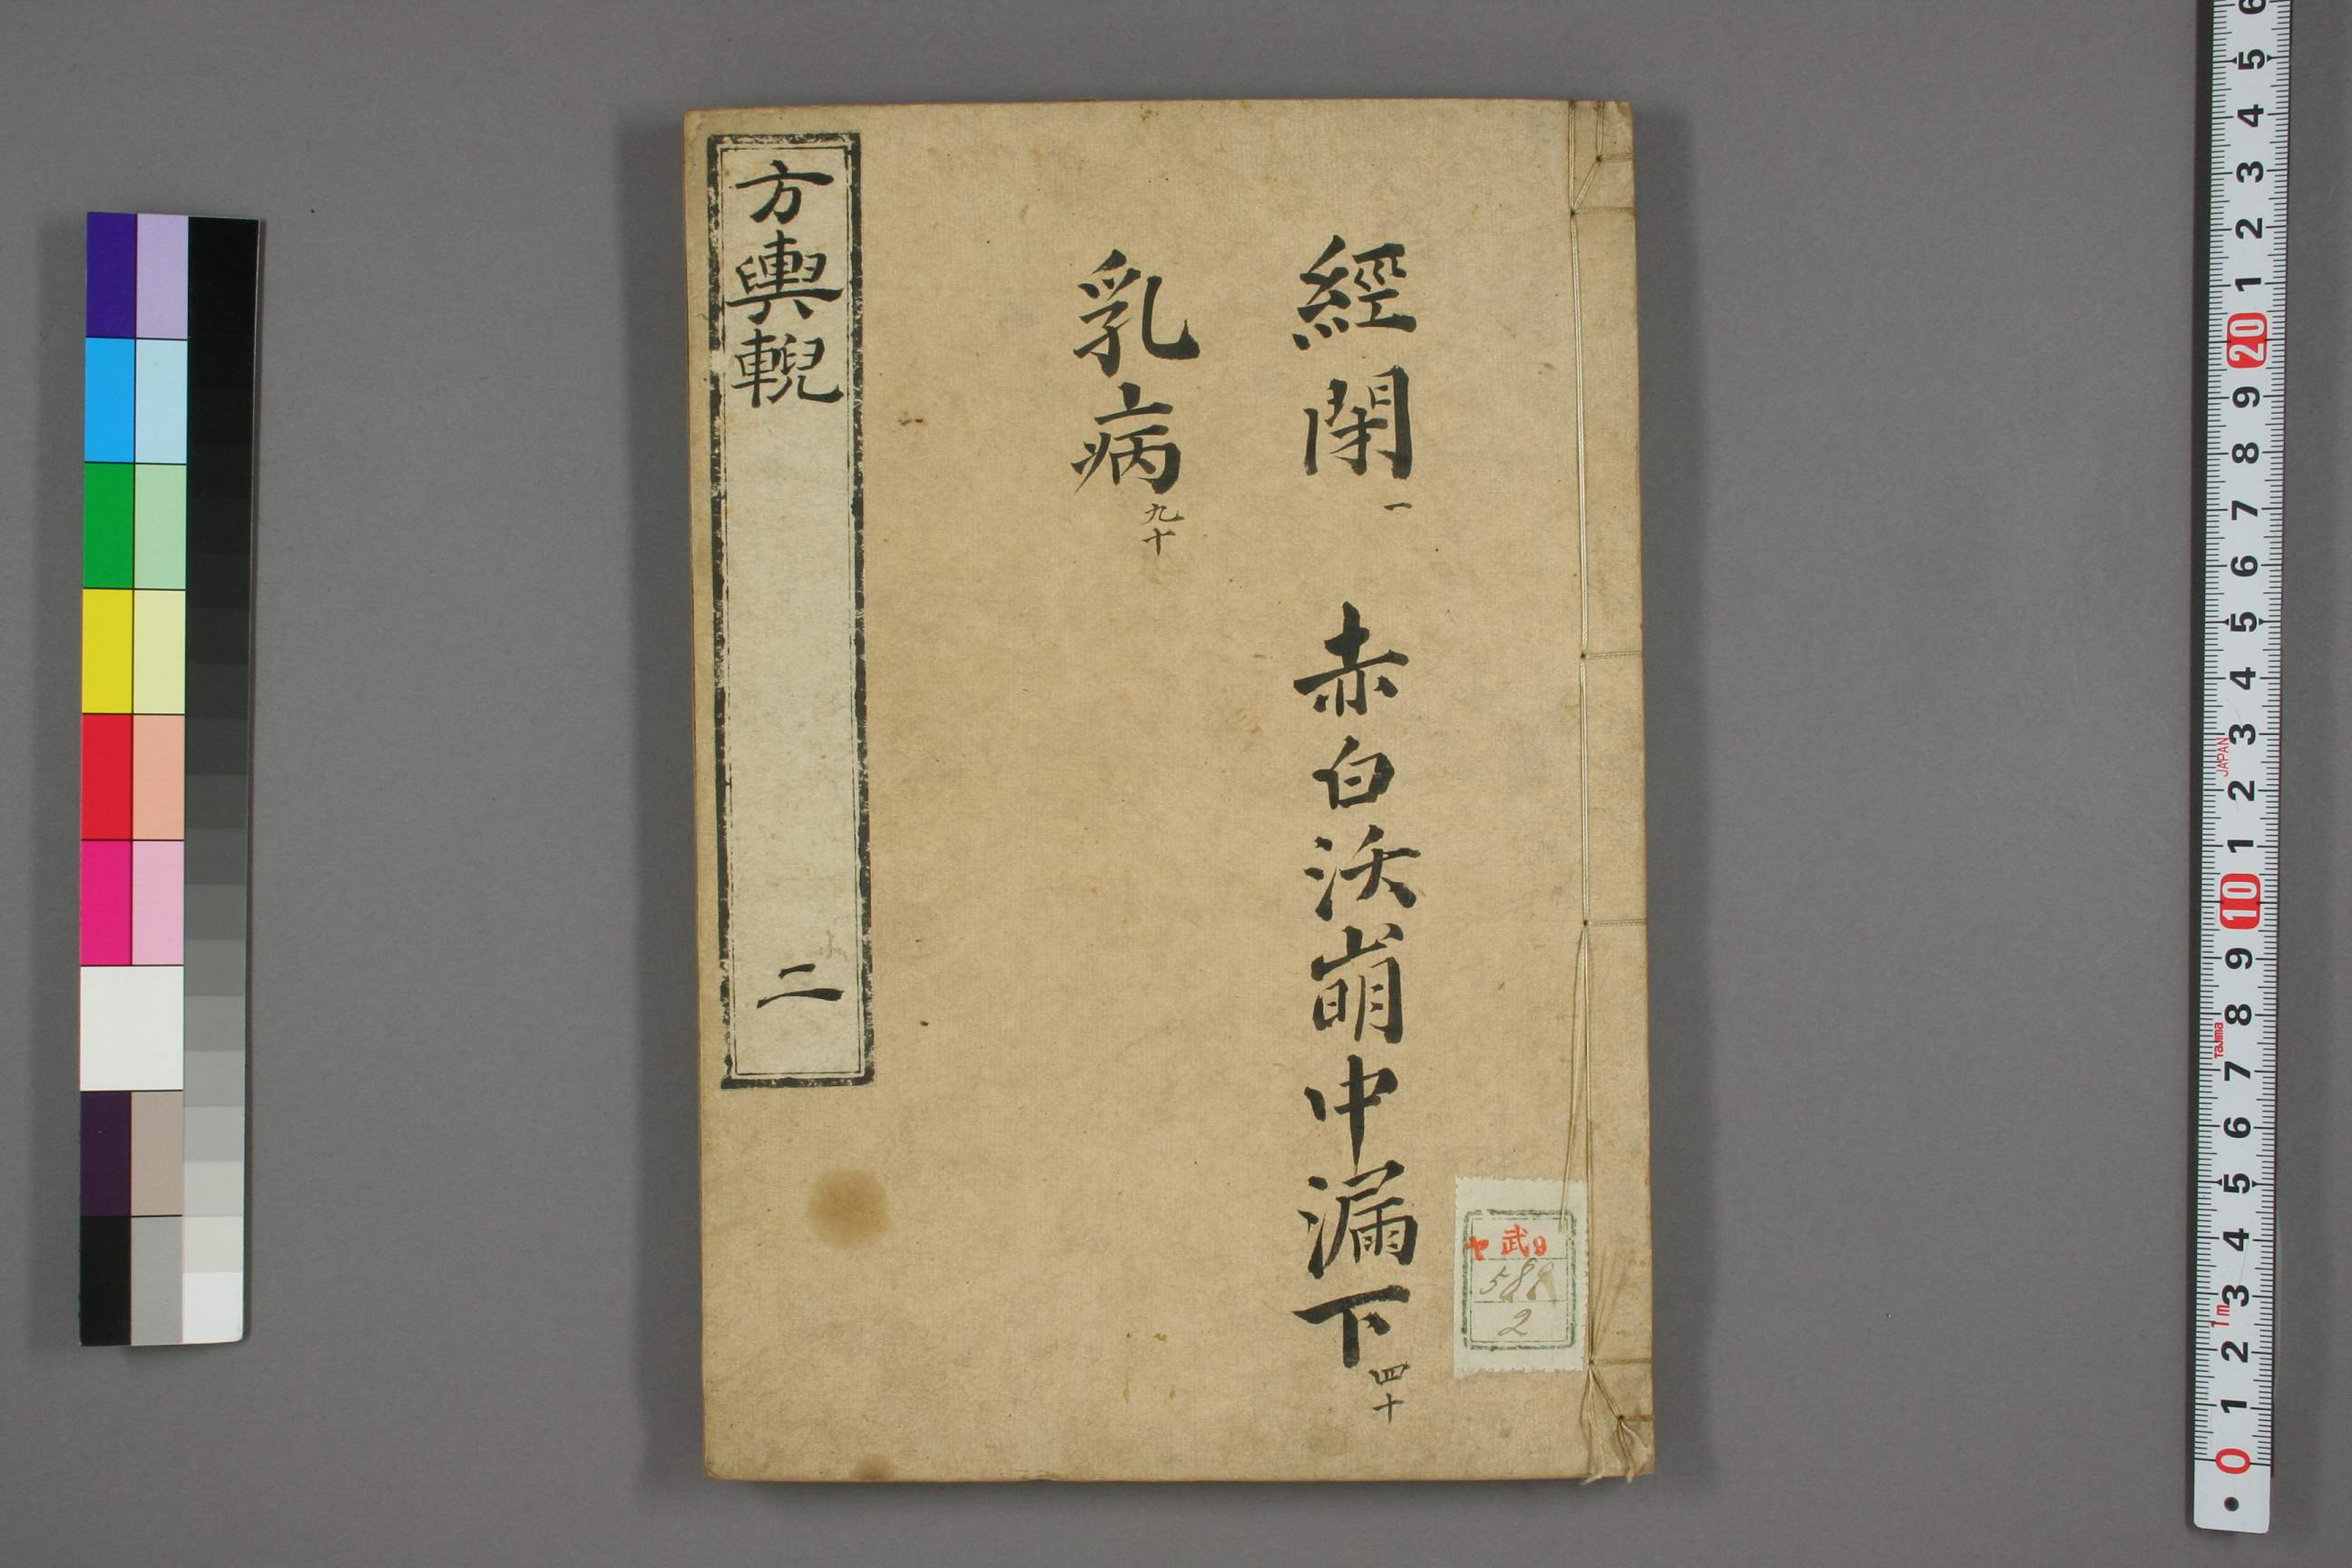 經閉一 赤白沃崩中漏下四十
乳病九十
方輿輗 二
ヤ武9
588
2
6
5
4
3
2
1
20
9
8
7
6
5
4
3
2
1
10
9
8
7
6
5
4
3
2
1
0
JAPAN
Tajima
1m